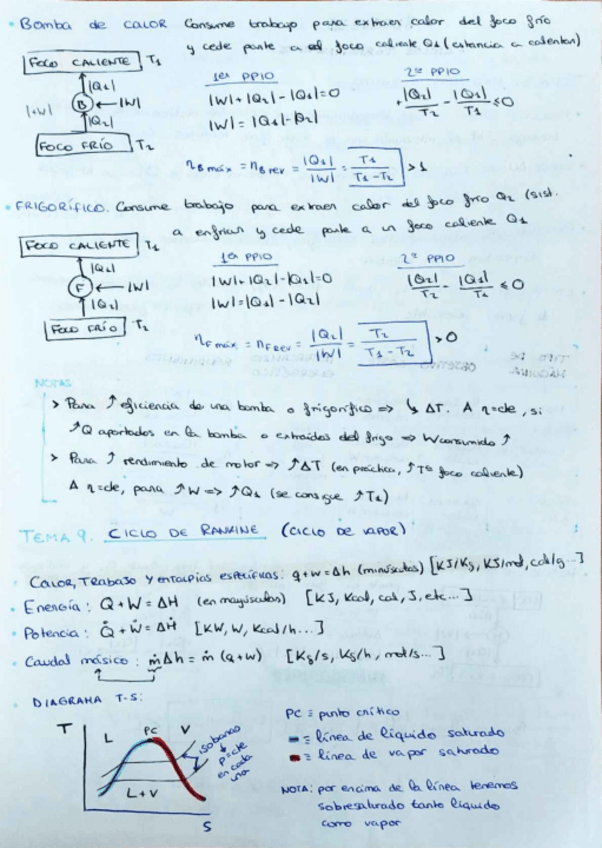 • Bomba de CALOR Consume trabajo para extraer calor del foco frío
y cede parte a el foco caliente Q1 (estancia a calentar)
FOCO CALIENTE T1
|Q1|
|+W| B ← |W|
|Q2|
FOCO FRÍO T2
1er PPIO
|W| + |Q2| - |Q1| = 0
|W| = |Q1| - |Q2|
2º PPIO
+ |Q2|/T2 - |Q1|/T1 ≤ 0
ηB máx = ηB rev = |Q1|/|W| = T1/(T1-T2) > 1
• FRIGORÍFICO. Consume trabajo para extraer calor del foco frío Q2 (sist.
a enfriar y cede parte a un foco caliente Q1
FOCO CALIENTE T1
|Q1|
F ← |W|
|Q2|
FOCO FRÍO T2
1er PPIO
|W| + |Q2| - |Q1| = 0
|W| = |Q1| - |Q2|
2º PPIO
|Q2|/T2 - |Q1|/T1 ≤ 0
ηF máx = ηF rev = |Q2|/|W| = T2/(T1-T2) > 0
NOTAS
> Para ↑ eficiencia de una bomba o frigorífico => ↳ ΔT. A η=cte, si
↑Q aportados en la bomba o extraídos del frigo => W consumido ↑
> Para ↑ rendimiento de motor => ↑ΔT (en práctica, ↑Tª foco caliente)
A η=cte, para ↑W => ↑Q1 (se consigue ↑T1)
TEMA 9. CICLO DE RANKINE (CICLO DE VAPOR)
• CALOR, TRABAJO Y entalpías específicas: q+w=Δh (minúsculas) [KJ/Kg, KJ/mol, cal/g...]
• Energía: Q+W=ΔH (en mayúsculas) [KJ, Kcal, cal, J, etc...]
• Potencia: Q̇+Ẇ=ΔḢ [KW, W, Kcal/h...]
• Caudal másico: ṁΔh = ṁ (q+w) [Kg/s, Kg/h, mol/s...]
• DIAGRAMA T-S:
T
L
PC
V
isobaras
p=cte
en cada
una
L+V
S
PC ≡ punto crítico
≡ línea de líquido saturado
≡ línea de vapor saturado
NOTA: por encima de la línea tenemos
sobresaturado tanto líquido
como vapor